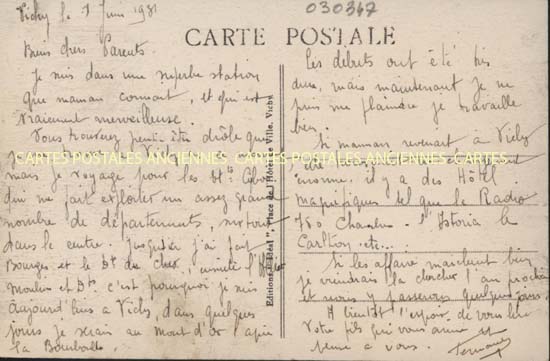 Vichy le 1 Juin 1931
030347
CARTE POSTALE
Biens chers Parents.
Je suis dans une superbe station
que maman connait, et qui est
vraiement merveilleuse.
Vous trouverez peut être drôle que
je Vichy
mais je voyage pour les
qui me fait exploiter un assez grand
nombre de départements, surtout
dans le centre. Jusqu'ici j'ai fait
Bourges et le Dt du Cher, ensuite l'Allier
Moulin et Dt. c'est pourquoi je suis
aujourd'hui à Vichy, dans quelques
jours je serais au Mont d'or, après
la Bourboule.
Editions "Idéal", Place de l'Hôtel de Ville, Vichy
Les débuts ont été très
durs, mais maintenant je ne
puis me plaindre je travaille
bien.
Si maman revenait à Vichy
énorme, il y a des Hôtel
magnifiques tel que le Radio
750 Chambres. l'Astoria le
Carlton, etc...
Si les affaires marchent bien
je viendrais la chercher l'an prochain
et nous y passerons quelques jours.
A bientôt l'espoir, de vous lire
Votre fils qui vous aime et
pense à vous. Fernand
CARTES POSTALES ANCIENNES CARTES POSTALES ANCIENNES